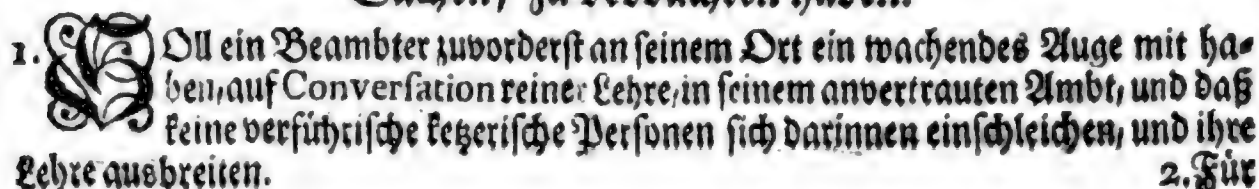 Sachen/ zu beobachten haben.
1. SOll ein Beambter zuvorderst an seinem Ort ein wachendes Auge mit ha-
ben, auf Conversation reiner Lehre, in seinem anvertrauten Ambt, und daß
keine verführische ketzerische Personen sich darinnen einschleichen, und ihre
Lehre ausbreiten. 2. Für